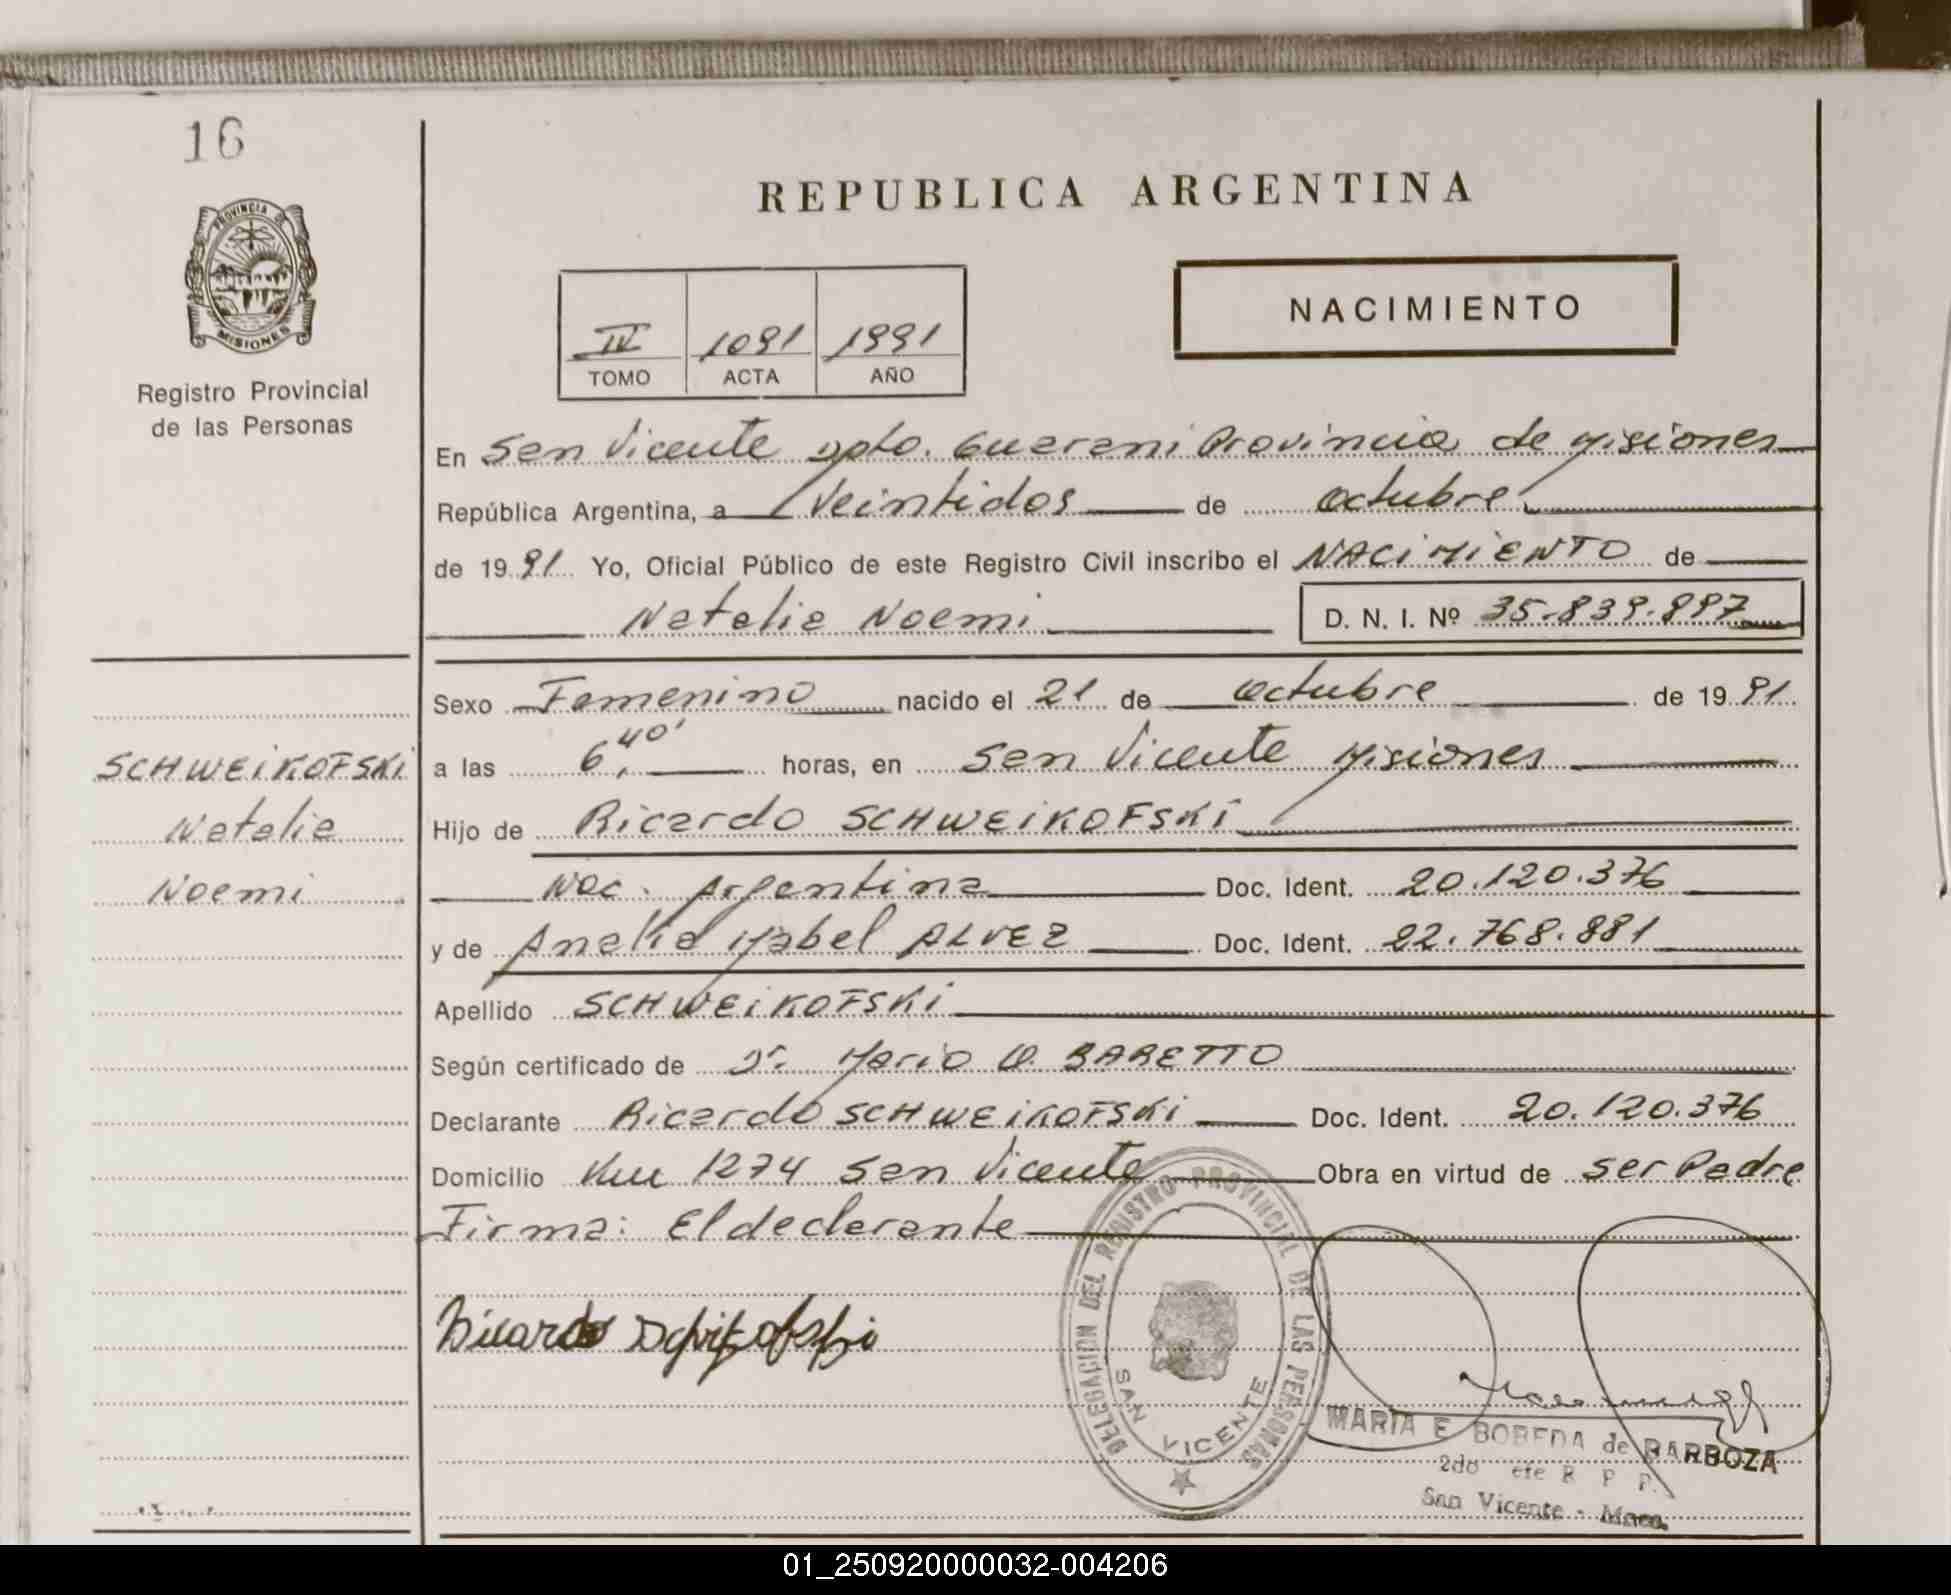 16
REPUBLICA ARGENTINA
PROVINCIA DE
MISIONES
Registro Provincial
de las Personas
NACIMIENTO
IV 1091 1991
TOMO ACTA AÑO
En San Vicente Dpto. Guarani Provincia de Misiones
República Argentina, a Veintidos de octubre
de 1991 Yo, Oficial Público de este Registro Civil inscribo el NACIMIENTO de
Natalia Noemi D. N. I. Nº 35.839.897
Sexo Femenino nacido el 21 de octubre de 1991
SCHWEIKOFSKI
Natalia
Noemi
a las 6,40' horas, en San Vicente Misiones
Hijo de Ricardo SCHWEIKOFSKI
Nac. Argentina Doc. Ident. 20.120.376
y de Analia Mabel ALVEZ Doc. Ident. 22.768.881
Apellido SCHWEIKOFSKI
Según certificado de Dr. Mario O. BARETTO
Declarante Ricardo SCHWEIKOFSKI Doc. Ident. 20.120.376
Domicilio Km 1274 San Vicente Obra en virtud de ser Padre
Firma: El declarante
Ricardo
DELEGACION DEL REGISTRO PROVINCIAL DE LAS PERSONAS
SAN VICENTE
MARIA E BOBEDA de BARBOZA
2do efe R P P.
San Vicente - Mnes.
01_250920000032-004206